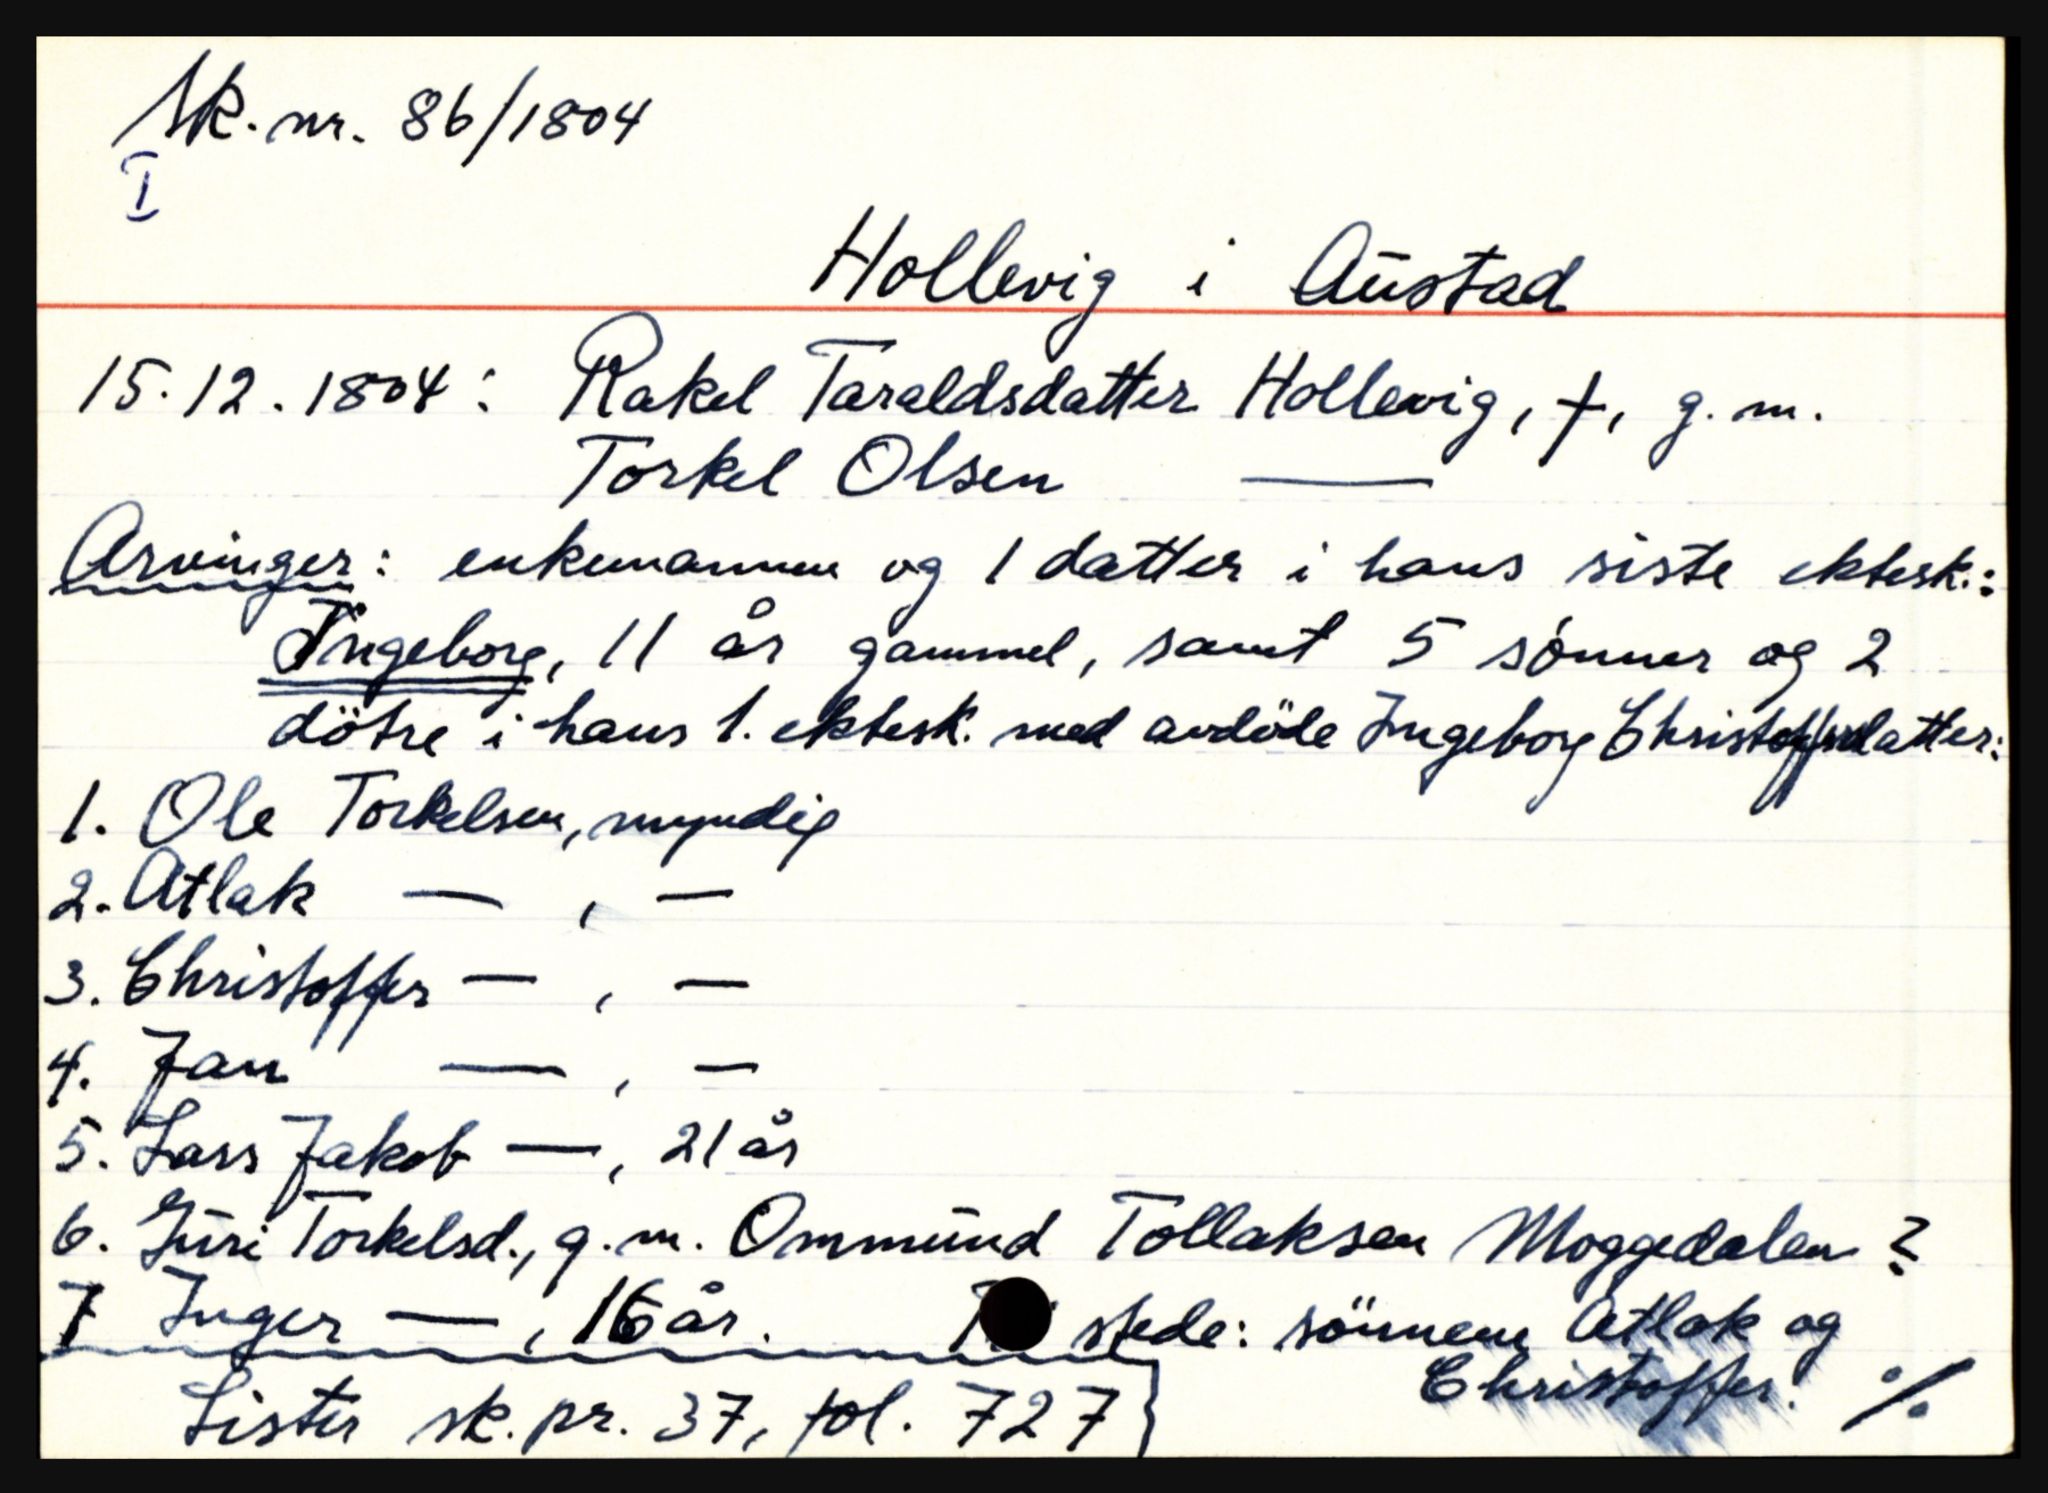 Sk. nr. 86/1804
I
Hollevig i Austad
15.12.1804: Rakel Taraldsdatter Hollevig, †, g. m.
Torkel Olsen —
Arvinger: enkemannen og 1 datter i hans siste ektesk.:
Ingeborg, 11 år gammel, samt 5 sönner og 2
dötre i hans 1. ektesk. med avdöde Ingeborg Christoffersdatter:
1. Ole Torkelsen, myndig
2. Atlak — , —
3. Christoffer — , —
4. Jan — , —
5. Lars Jakob —, 21 år
6. Juri Torkelsd., g. m. Ommund Tollaksen Moggedalen ?
7 Inger — , 16 år. stede: sönnene Atlak og
Christoffer. ·/.
Lister sk. pr. 37, fol. 727